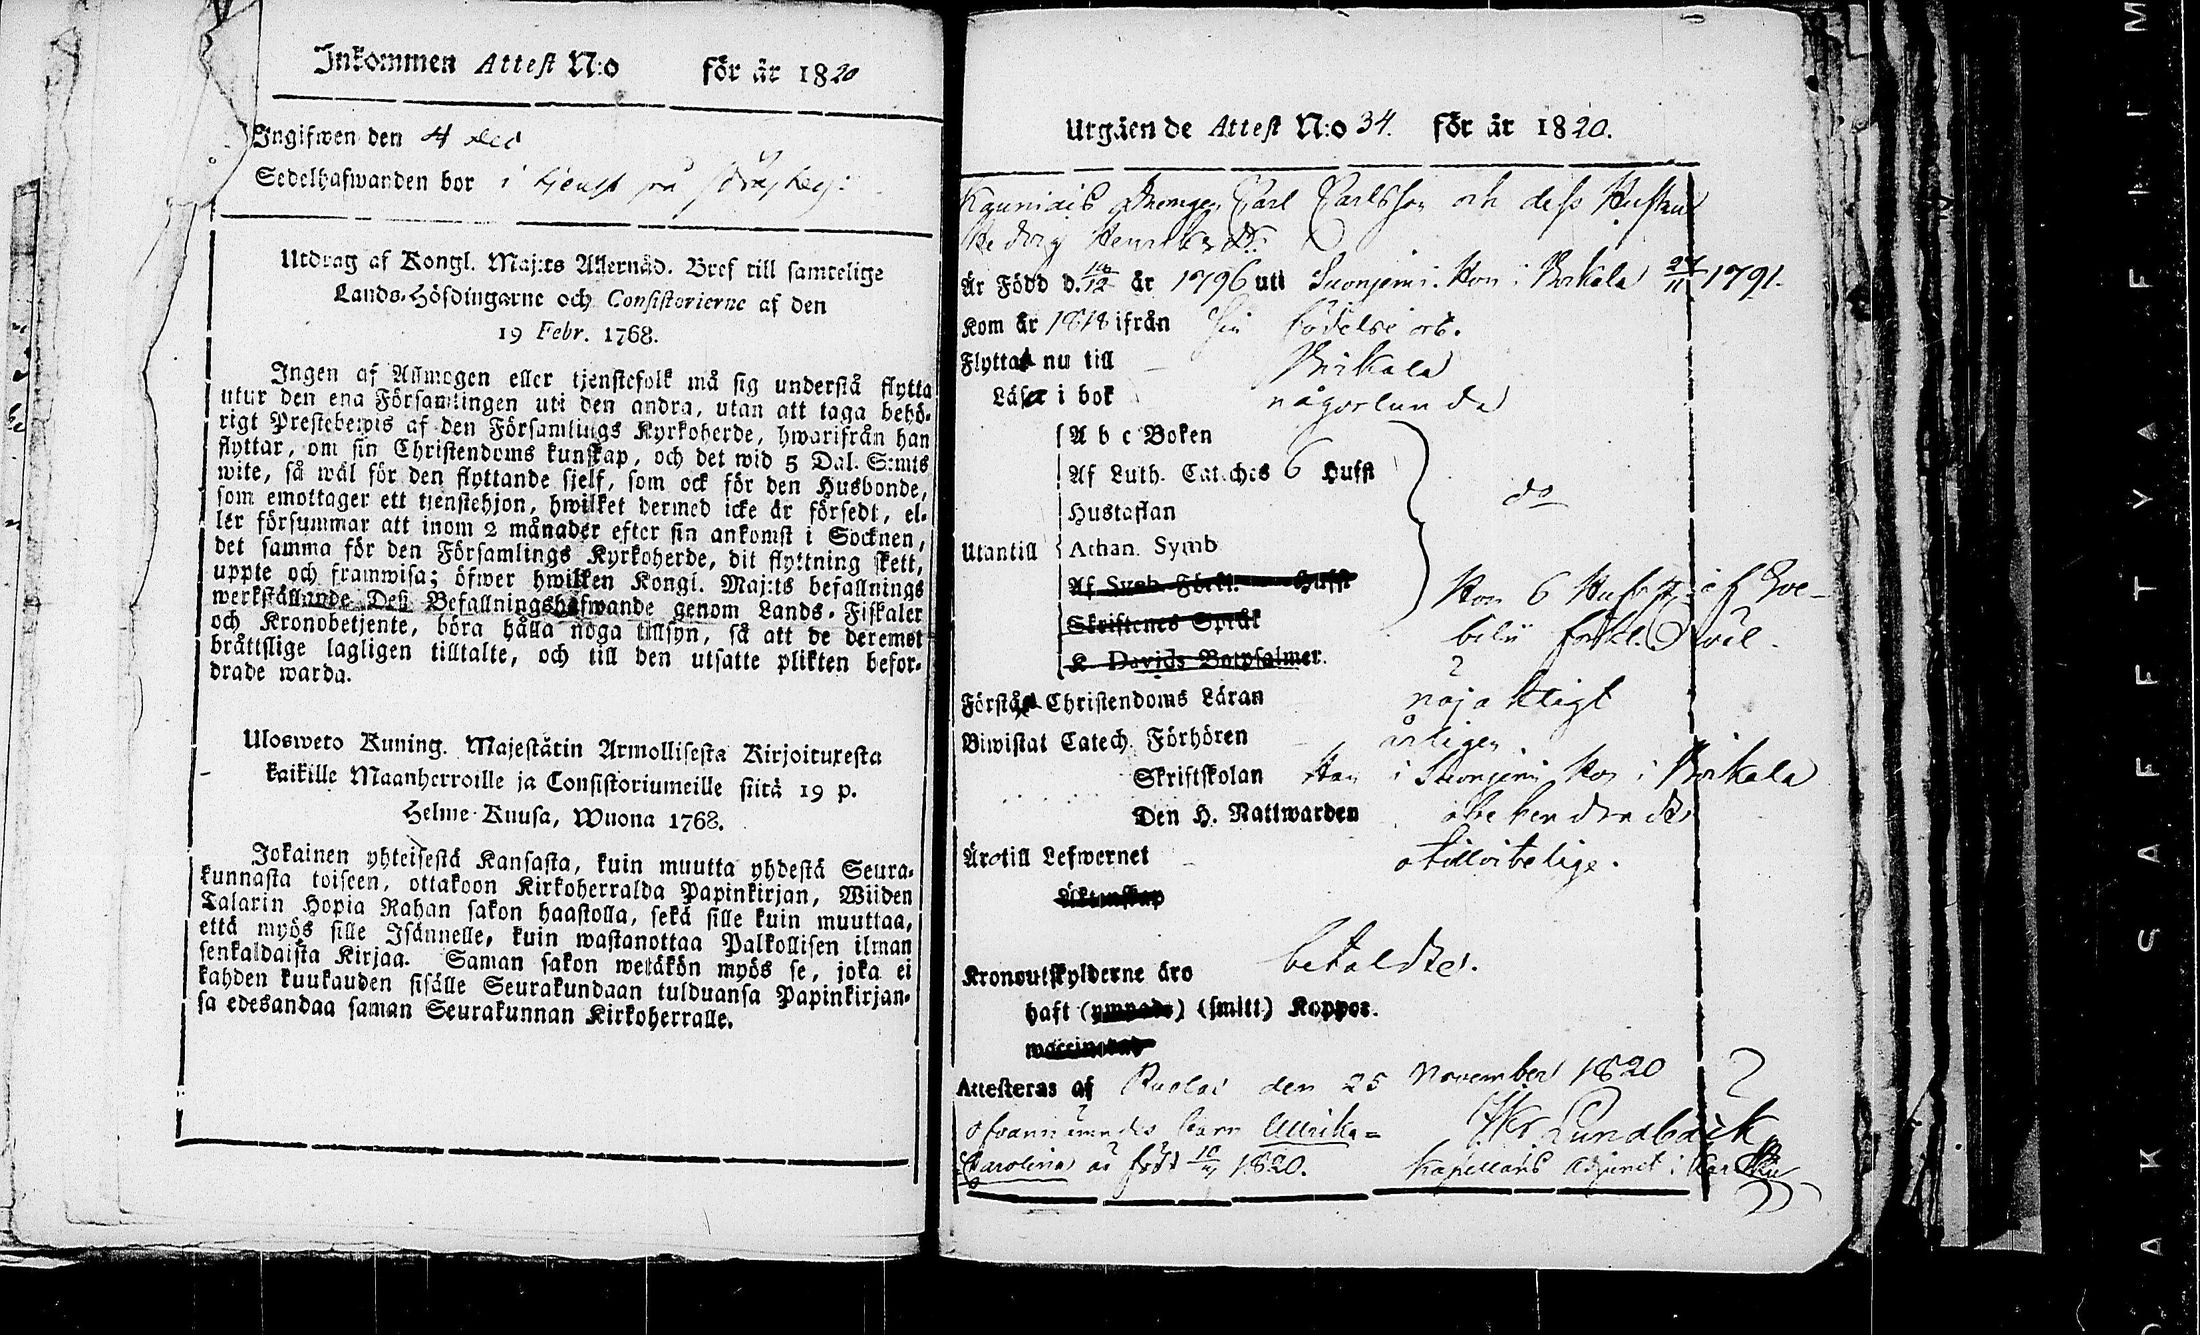 Inkommen Attest N:o för år 1820
Ingifwen den 4 Dec
Sedelhafwanden bor i tjenst på
Utdrag af Kongl. Maj:ts Allernåd. Bref till samtelige
Lands-Höfdingarne och Consistorierne af den
19 Febr. 1768.
Ingen af Allmogen eller tjenstefolk må sig understå flytta
utur den ena Församlingen uti den andra, utan att taga behö-
rigt Prestebewis af den Församlings Kyrkoherde, hwarifrån han
flyttar, om sin Christendoms kunskap, och det wid 5 Dal. S:mts
wite, så wäl för den flyttande sjelf, som ock för den Husbonde,
som emottager ett tjenstehjon, hwilket dermed icke är försedt, el-
ler försummar att inom 2 månader efter sin ankomst i Socknen,
det samma för den Församlings Kyrkoherde, dit flyttning skett,
uppte och framwisa; öfwer hwilken Kongl. Maj:ts befallnings
werkställande Deß Befallningshafwande genom Lands-Fiskaler
och Kronobetjente, böra hålla noga tillsyn, så att de deremot
bråttslige lagligen tilltalte, och till den utsatte plikten befor-
drade warda.
Ulosweto Kuning. Majestätin Armollisesta Kirjoituxesta
kaikille Maanherroille ja Consistoriumeille siitä 19 p.
Helme-Kuusa, Wuona 1768.
Jokainen yhteisestä Kansasta, kuin muutta yhdestä Seura-
kunnasta toiseen, ottakoon Kirkoherralda Papinkirjan, Wiiden
Talarin Hopia Rahan sakon haastolla, sekä sille kuin muuttaa,
että myös sille Isännelle, kuin wastanottaa Palkollisen ilman
senkaldaista Kirjaa. Saman sakon wetäkön myös se, joka ei
kahden kuukauden sisälle Seurakundaan tulduansa Papinkirjan-
sa edesandaa saman Seurakunnan Kirkoherralle.
Utgåen de Attest N:o 34. för år 1820.
Drengen Carl Carlsson och dess Hustru
Hedvig Henriksdr
Är Född d. 10/12 år 1796 uti Suonjemi. Hon i Birkala 27/11 1791.
Kom år 1818 ifrån sin födelse ort.
Flytta nu till Birkala
Läsa i bok någorlunda
A b c Boken
Af Luth. Catechs 6 Hufst
Hustaflan do
Utantill Athan. Symb
Af Symb. Förkl. Hufst
Hon 6 Hufst. af Sve-
Skriftenes Språk
bilii förkl. wäl.
K. Davids Botpsalmer.
Förstå Christendoms Läran nöjaktigt
Biwistat Catech. Förhören årligen
Skriftskolan Han i Suonjemi, Hon i Birkala
Den H. Nattwarden
Äro till Lefwernet otillvitelige.
Äktenskap
Kronoutskylderne äro betaldte.
haft (ympade) (smitt) Koppor.
waccinerad
Attesteras af den 25 November 1820
ofvannämndes barn Ulrika- Lundbäck
Carolina är född 10/11 1820. Kapellans Adjunct i